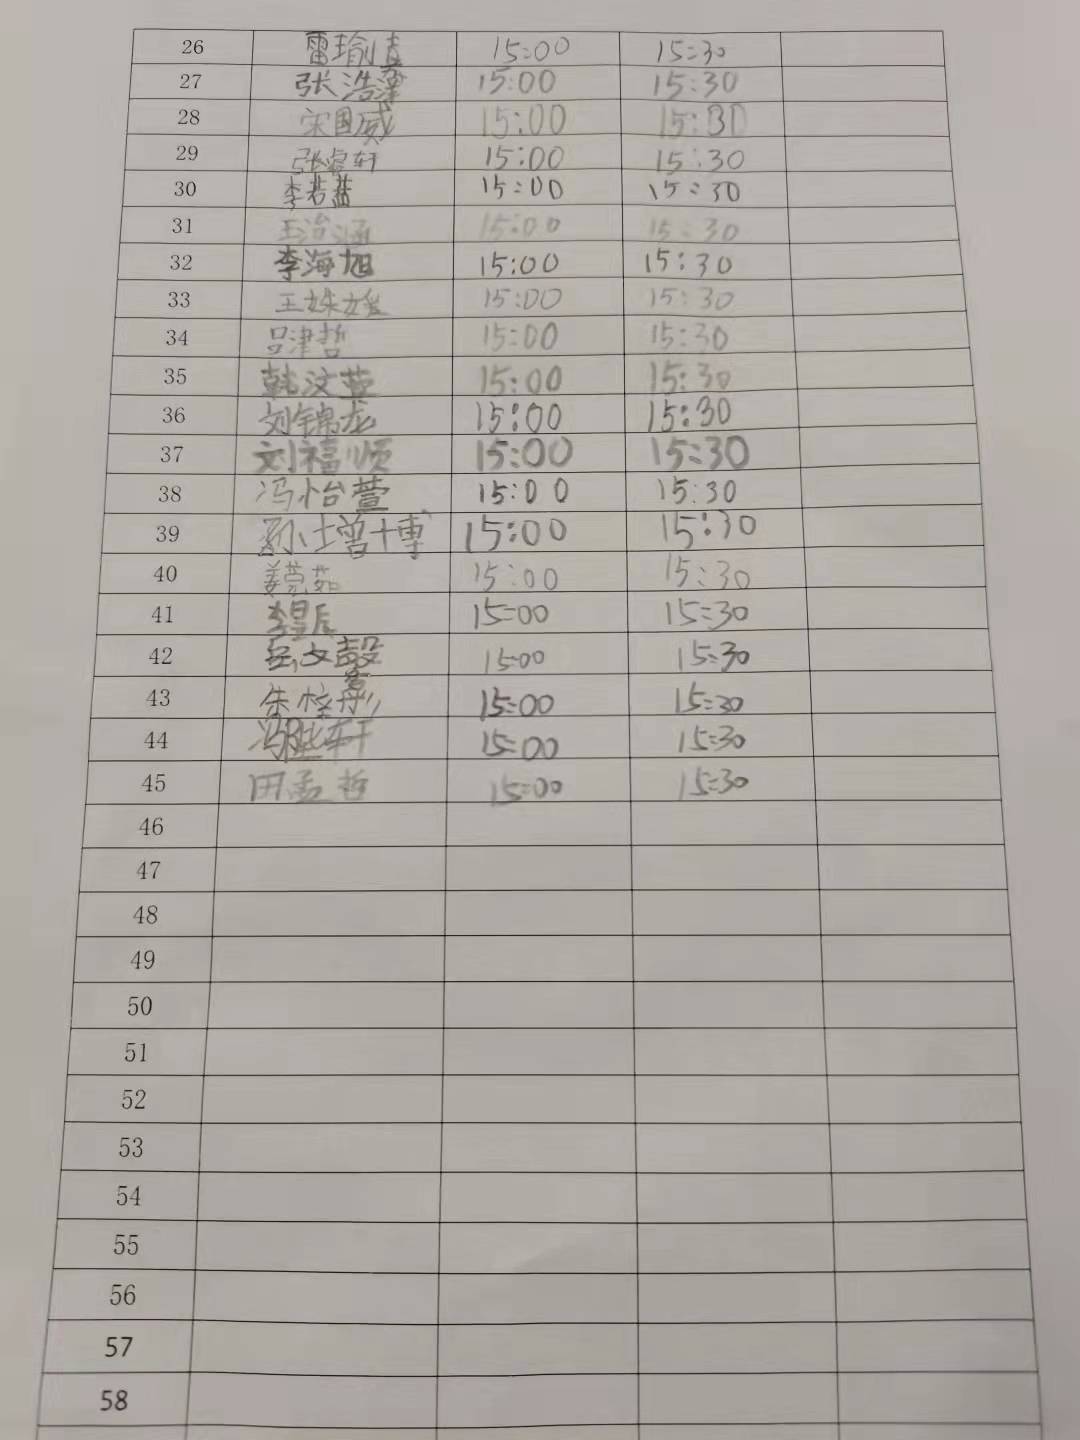 26 雷瑜真 15:00 15:30
27 张浩澤 15:00 15:30
28 宋国威 15:00 15:30
29 张睿轩 15:00 15:30
30 李若菡 15:00 15:30
31 王治涵 15:00 15:30
32 李海旭 15:00 15:30
33 王姝媛 15:00 15:30
34 吕津哲 15:00 15:30
35 韩汶萱 15:00 15:30
36 刘锦龙 15:00 15:30
37 刘福顺 15:00 15:30
38 冯怡萱 15:00 15:30
39 孙增博 15:00 15:30
40 姜莞茹 15:00 15:30
41 15:00 15:30
42 15:00 15:30
43 朱梓彤 15:00 15:30
44 轩 15:00 15:30
45 田孟哲 15:00 15:30
46
47
48
49
50
51
52
53
54
55
56
57
58